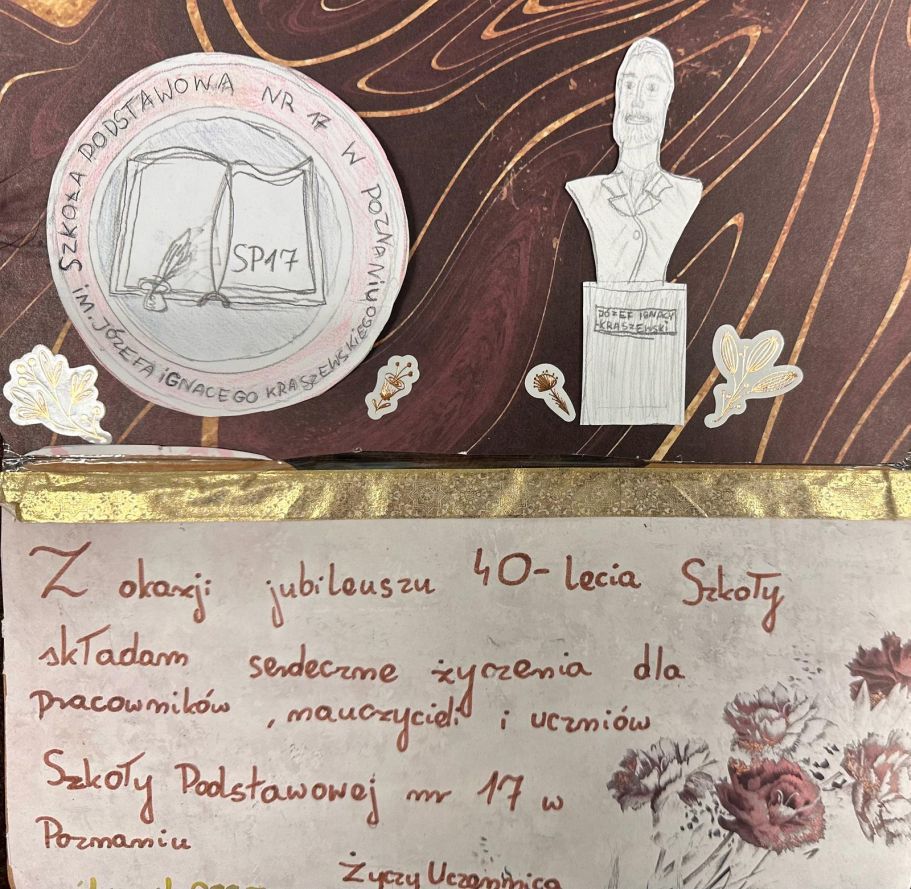 SZKOŁA PODSTAWOWA NR 17 W POZNANIU
IM. JÓZEFA IGNACEGO KRASZEWSKIEGO
SP17
JÓZEF IGNACY
KRASZEWSKI
Z okazji jubileuszu 40-lecia Szkoły
składam serdeczne życzenia dla
pracowników, nauczycieli i uczniów
Szkoły Podstawowej nr 17 w
Poznaniu
Życzy Uczennica